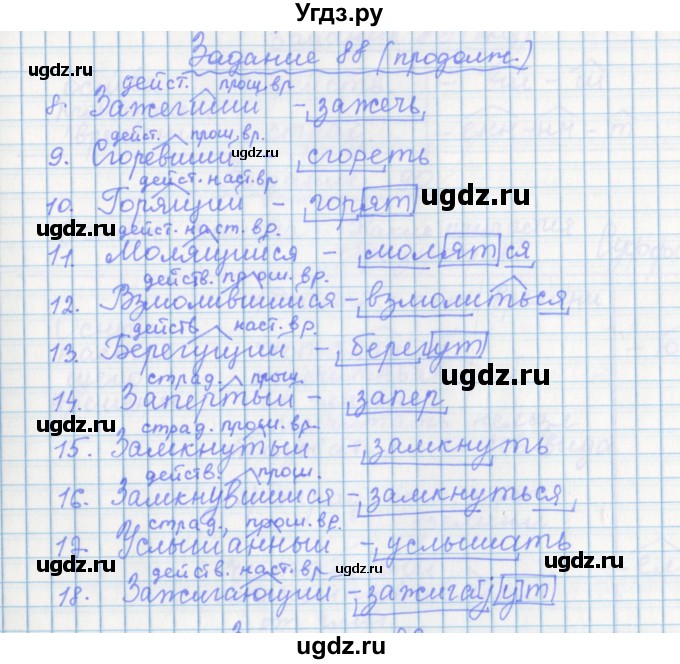 Угдз.ру
Задание 88 (продолж.)
дейст. прош. вр
8. Зажегший - зажечь
дейст. прош. вр.
9. Сгоревший - сгореть
дейст. наст. вр
10. Горящий - горят
дейст. наст. вр.
11. Молящийся - молятся
действ. прош. вр.
12. Взмолившийся - взмолиться
действ наст. вр.
13. Берегущий - берегут
страд. прош.
14. Запертый - запер
страд. прош. вр.
15. Замкнутый - замкнуть
действ. прош.
16. Замкнувшийся - замкнуться
страд., прош. вр.
17. Услышанный - услышать
действ. наст. вр
18. Зажигающий - зажига[j][у]т
ugdz.ru
ugdz.ru
ugdz.ru
ugdz.ru
ugdz.ru
ugdz.ru
ugdz.ru
ugdz.ru
ugdz.ru
ugdz.ru
ugdz.ru
ugdz.ru
ugdz.ru
ugdz.ru